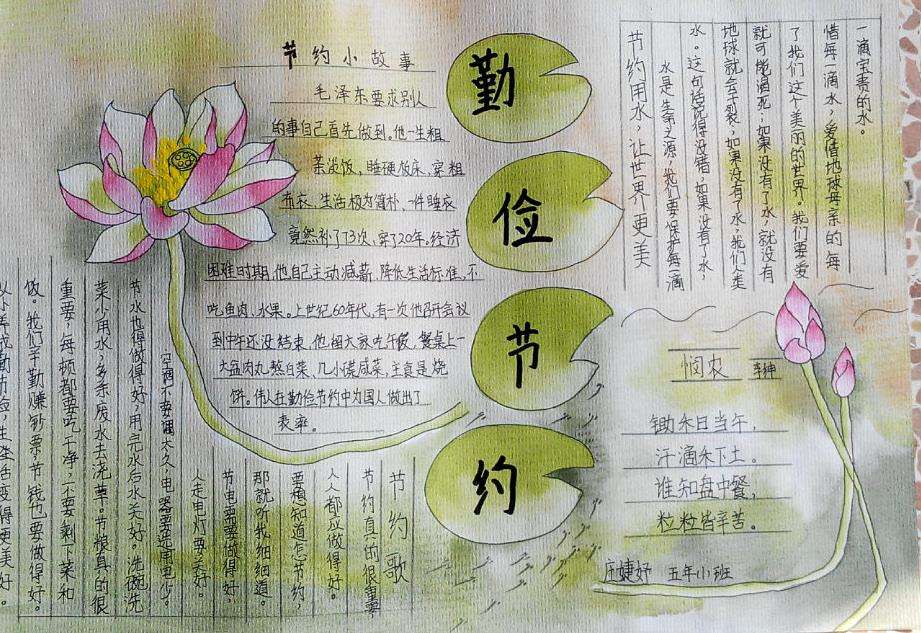 节约小故事
毛泽东要求别人
的事自己首先做到。他一生粗
茶淡饭，睡硬板床，穿粗
布衣，生活极为简朴，一件睡衣
竟然补了73次，穿了20年。经济
困难时期，他自己主动减薪、降低生活标准，不
吃鱼肉、水果。上世纪60年代，有一次他召开会议
到中午还没结束，他留大家吃午饭，餐桌上一
大盆肉丸熬白菜、几小碟咸菜，主食是烧
饼。伟人在勤俭节约中为国人做出了
表率。
勤
俭
节
约
节约用水，让世界更美
水是生命之源，我们要保护每一滴
水。这句话说得没错，如果没有了水，
地球就会干裂，如果没有了水，我们人类
就可能渴死；如果没有了水，就没有
了我们这个美丽的世界。我们要爱
惜每一滴水，爱惜地球母亲的每
一滴宝贵的水。
节约歌
节约真的很重要
人人都应做得好。
要想知道怎节约，
那就听我细细道。
节电需要做得好，
人走电灯要关好。
空调不要调太久，电器要选用电少。
节水也得做得好，用完水后水关好。洗碗洗
菜少用水，多余废水去浇草。节粮真的很
重要，每顿都要吃干净，不要剩下菜和
饭。我们辛勤赚钞票，节钱也要做得好。
从小养成勤节俭，生活变得更美好。
悯农 李绅
锄禾日当午，
汗滴禾下土。
谁知盘中餐，
粒粒皆辛苦。
婕妤 五年小班